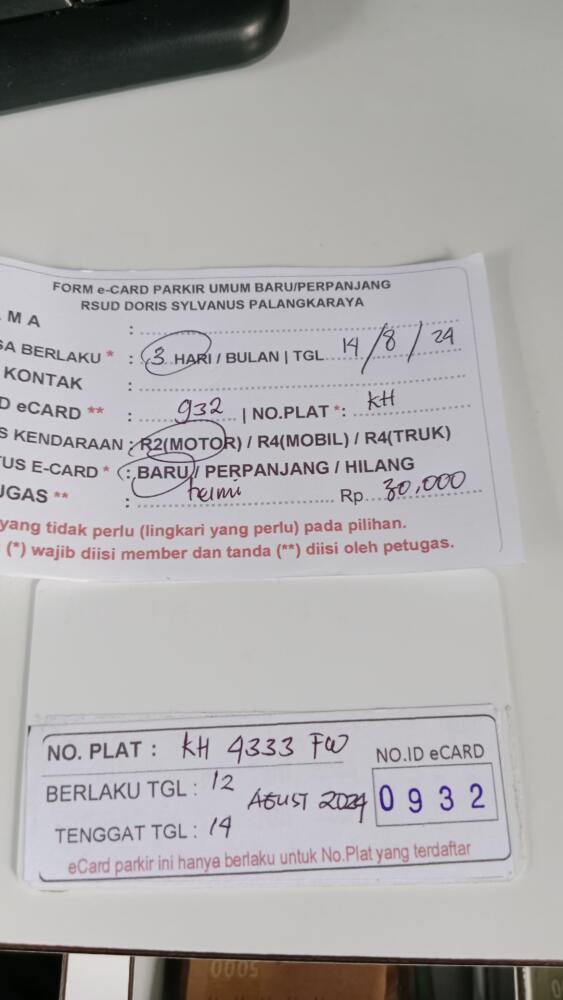 FORM e-CARD PARKIR UMUM BARU/PERPANJANG
RSUD DORIS SYLVANUS PALANGKARAYA
MA :
SA BERLAKU * : 3 HARI / BULAN | TGL 14/8/24
KONTAK :
D eCARD ** : 932 | NO.PLAT *: KH
S KENDARAAN : R2(MOTOR) / R4(MOBIL) / R4(TRUK)
TUS E-CARD * : BARU / PERPANJANG / HILANG
UGAS ** : helmi Rp. 30,000
yang tidak perlu (lingkari yang perlu) pada pilihan.
(*) wajib diisi member dan tanda (**) diisi oleh petugas.
NO. PLAT : KH 4333 FW
NO.ID eCARD
BERLAKU TGL : 12 AGUST 2024
0932
TENGGAT TGL : 14
eCard parkir ini hanya berlaku untuk No.Plat yang terdaftar